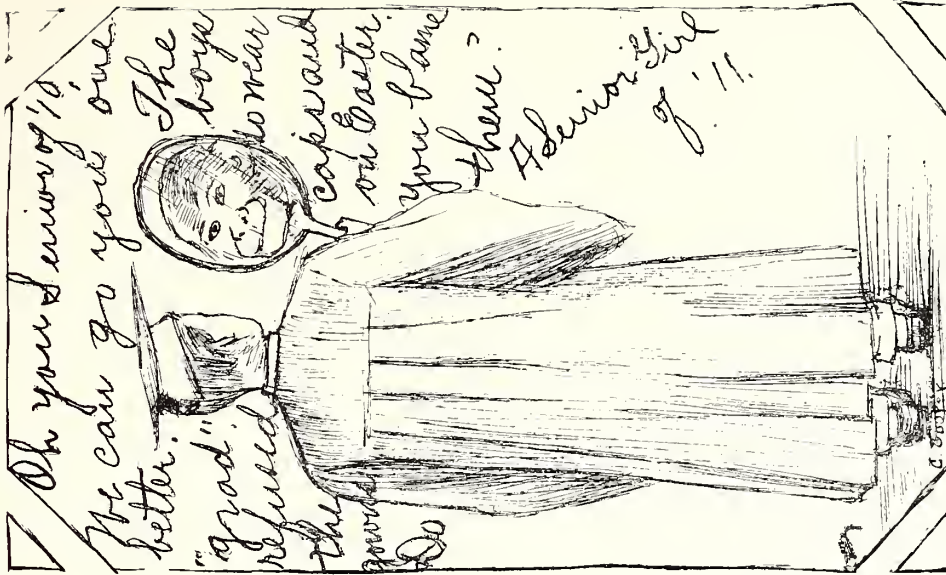 Oh you Senior of '10
We can go you one
better. The
"grad." boys
refused to wear
the caps and
gowns on Easter.
Do you blame
them?
A Senior Girl
of '11.